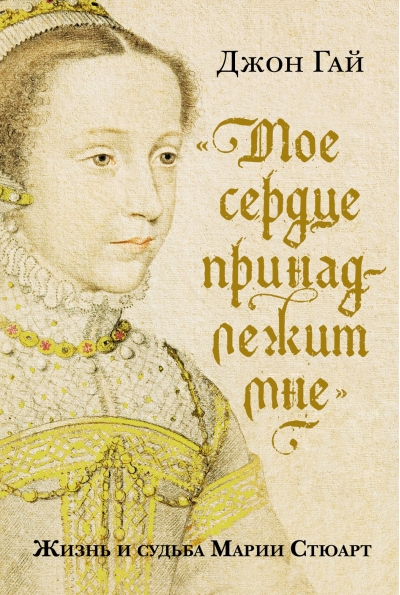 Джон Гай
«Мое
сердце
принад-
лежит
мне»
Жизнь и судьба Марии Стюарт